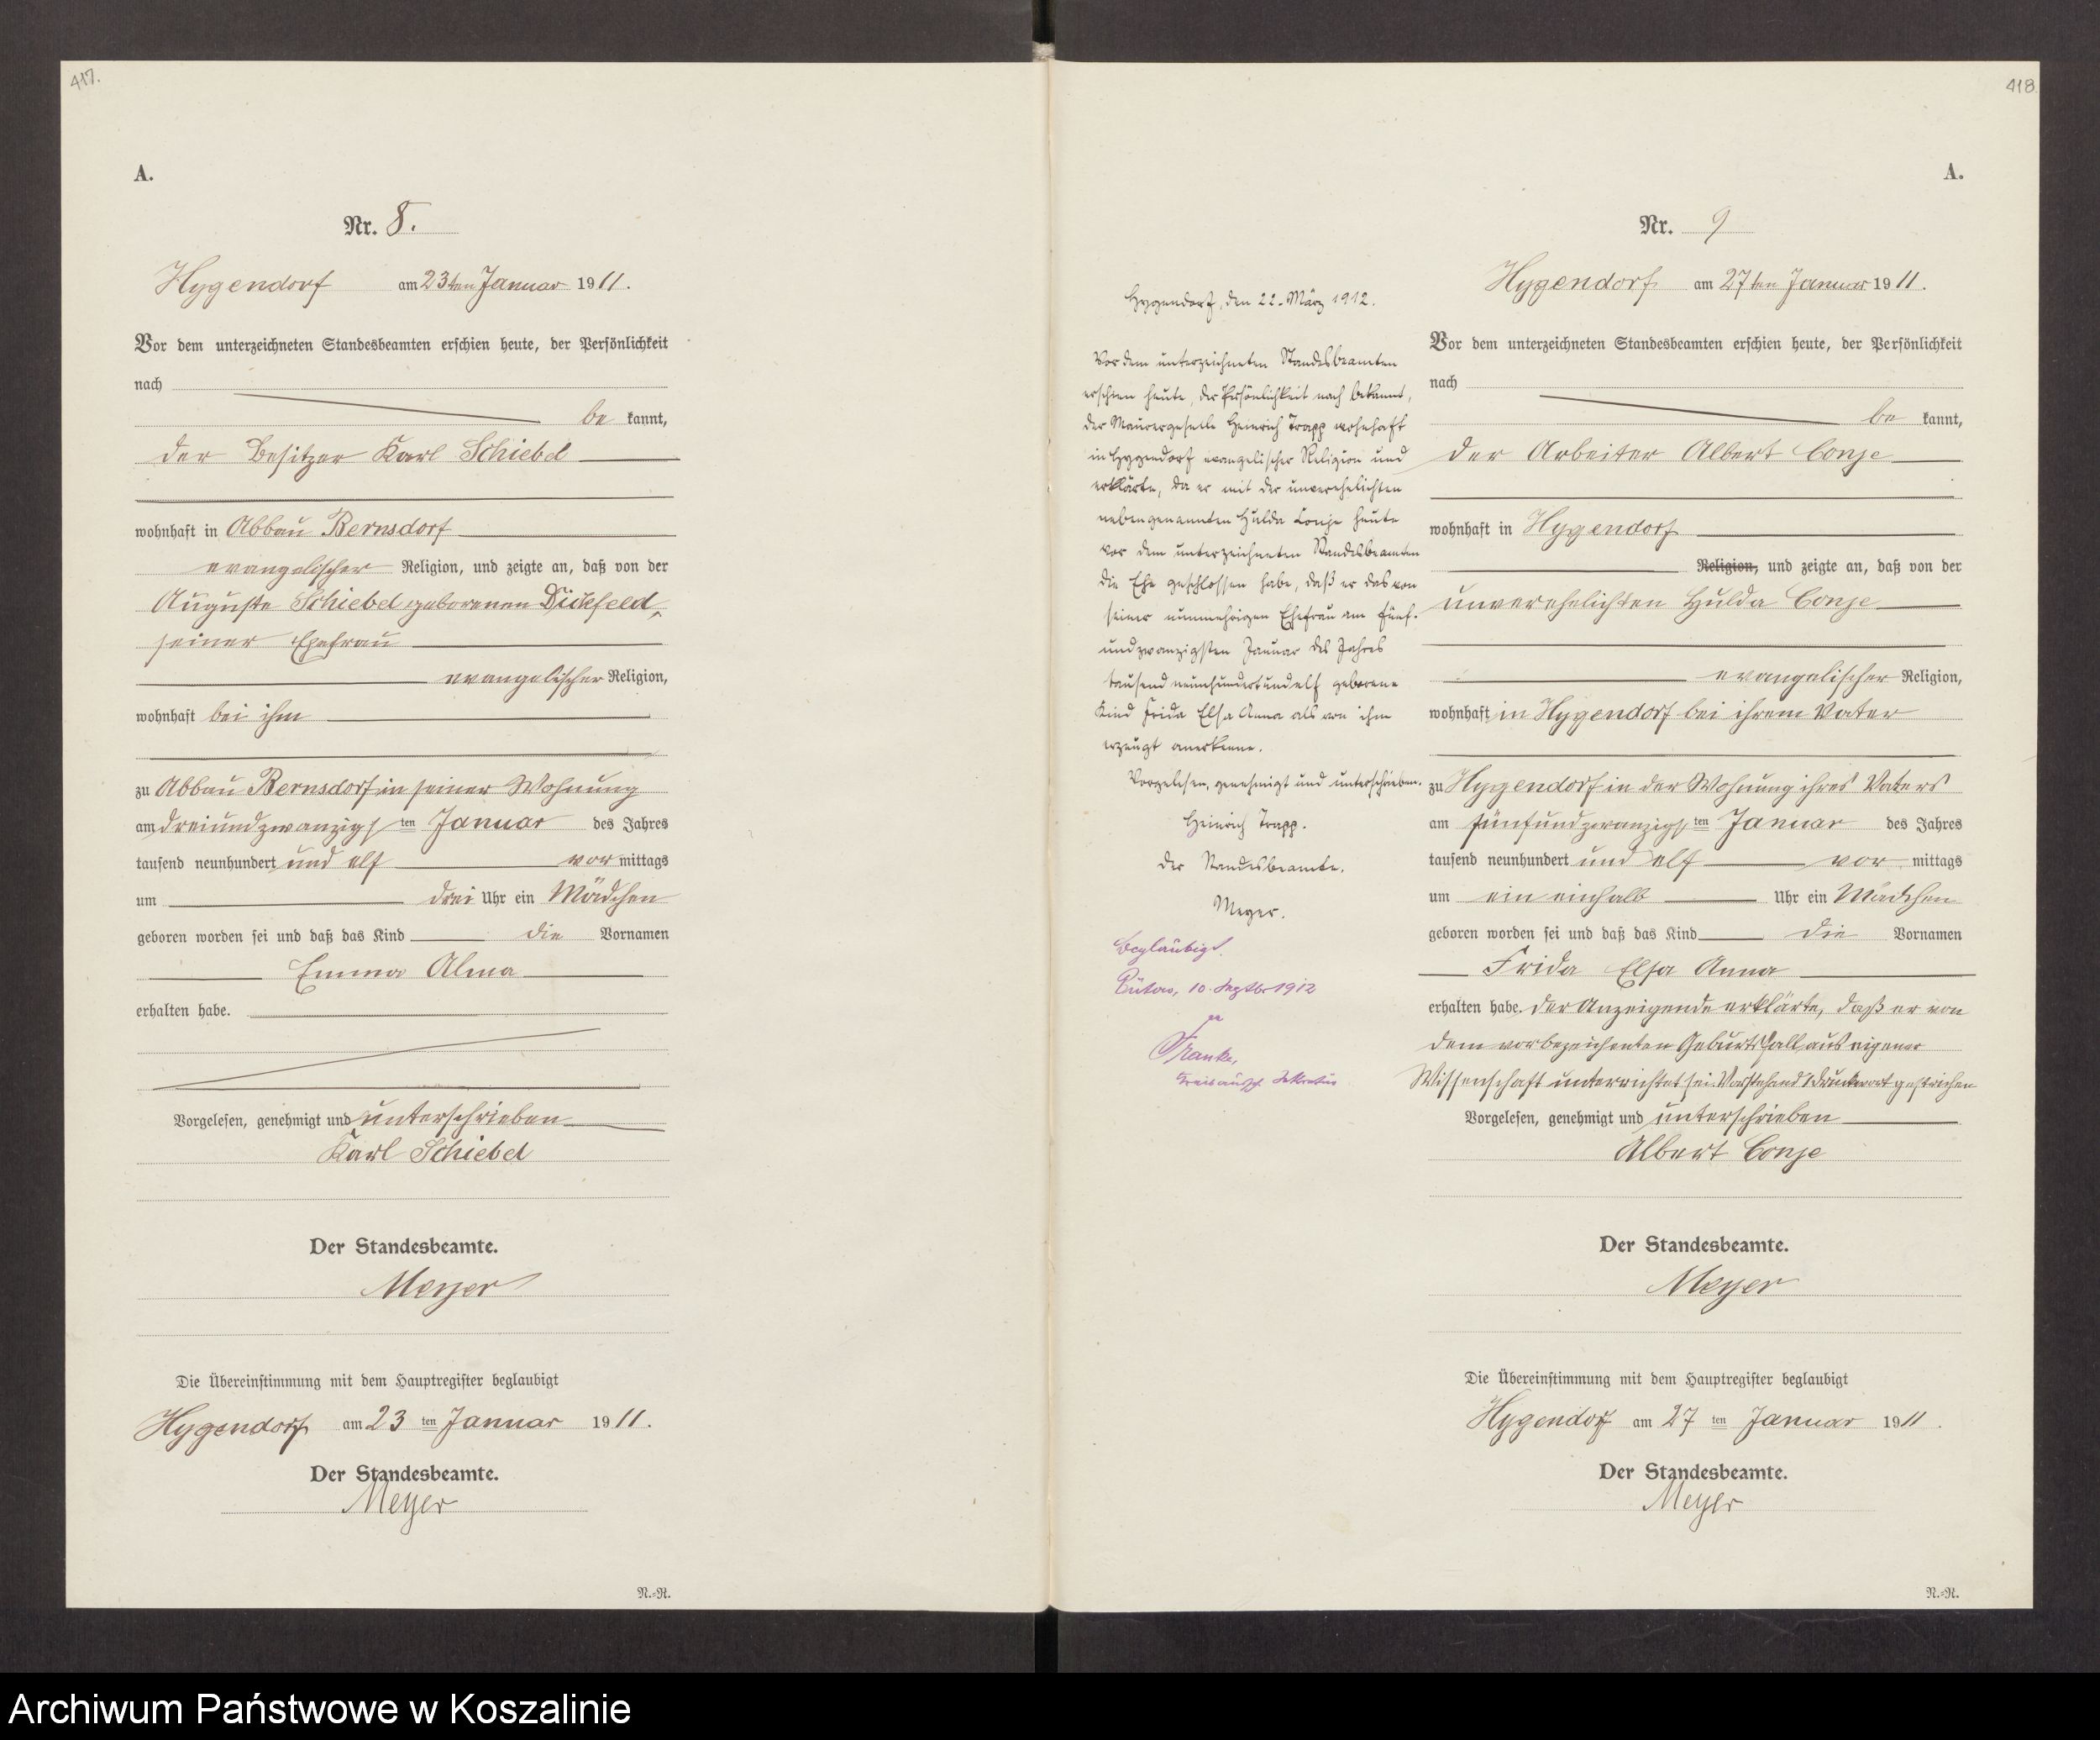 417.
A.
Nr. 8.
Hygendorf am 23ten Januar 1911.
Vor dem unterzeichneten Standesbeamten erschien heute, der Persönlichkeit
nach
be kannt,
der Besitzer Karl Schiebel
wohnhaft in Abbau Bernsdorf
evangelischer Religion, und zeigte an, daß von der
Auguste Schiebel geborenen Dickfeld,
seiner Ehefrau
evangelischer Religion,
wohnhaft bei ihm
zu Abbau Bernsdorf in seiner Wohnung
am dreiundzwanzigsten Januar des Jahres
tausend neunhundert und elf vor mittags
um drei Uhr ein Mädchen
geboren worden sei und daß das Kind die Vornamen
Emma Alma
erhalten habe.
Vorgelesen, genehmigt und unterschrieben
Karl Schiebel
Der Standesbeamte.
Meyer
Die Übereinstimmung mit dem Hauptregister beglaubigt
Hygendorf am 23 ten Januar 1911.
Der Standesbeamte.
Meyer
N.=R.
418
A.
Nr. 9
Hygendorf am 27ten Januar 1911.
Vor dem unterzeichneten Standesbeamten erschien heute, der Persönlichkeit
nach
be kannt,
der Arbeiter Albert Conje
wohnhaft in Hygendorf
Religion, und zeigte an, daß von der
unverehelichten Hulda Conje
evangelischer Religion,
wohnhaft in Hygendorf bei ihrem Vater
zu Hygendorf in der Wohnung ihres Vaters
am fünfundzwanzigsten Januar des Jahres
tausend neunhundert und elf vor mittags
um ein einhalb Uhr ein Mädchen
geboren worden sei und daß das Kind die Vornamen
Frida Elsa Anna
erhalten habe. Der Anzeigende erklärte, daß er von
dem vorbezeichneten Geburtsfall aus eigener
Wissenschaft unterrichtet sei. Vorstehend 1 Druckwort gestrichen
Vorgelesen, genehmigt und unterschrieben
Albert Conje
Der Standesbeamte.
Meyer
Die Übereinstimmung mit dem Hauptregister beglaubigt
Hygendorf am 27 ten Januar 1911.
Der Standesbeamte.
Meyer
N.=R.
Hygendorf, den 22. März 1912.
Vor dem unterzeichneten Standesbeamten
erschien heute, der Persönlichkeit nach bekannt,
der Maurergeselle Heinrich Trapp wohnhaft
in Hygendorf evangelischer Religion und
erklärte, da er mit der unverehelichten
nebengenannten Hulda Conje heute
vor dem unterzeichneten Standesbeamten
die Ehe geschlossen habe, daß er das von
seiner nunmehrigen Ehefrau am fünf-
undzwanzigsten Januar des Jahres
tausend neunhundert und elf geborene
Kind Frida Elsa Anna als von ihm
erzeugt anerkenne.
Vorgelesen, genehmigt und unterschrieben.
Heinrich Trapp.
Der Standesbeamte.
Meyer.
Beglaubigt.
Bütow, 10. Septbr 1912
Franke,
Kreisaussch. Sekretär
Archiwum Państwowe w Koszalinie